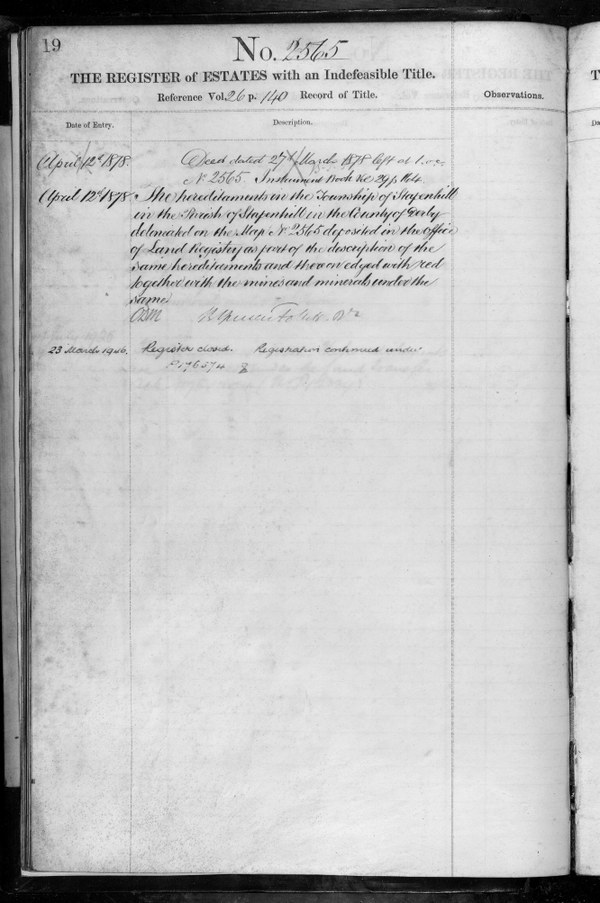 19
No. 2565
THE REGISTER of ESTATES with an Indefeasible Title.
Reference Vol. 26 p. 140 Record of Title.
Observations.
Date of Entry.
Description.
April 12th 1878.
Deed dated 27th March 1878 left at
No 2565 Instrument Book &c 29 p. 164
April 12th 1878.
The hereditaments in the Township of Stapenhill
in the Parish of Stapenhill in the County of Derby
delineated on the Map No 2565 deposited in the office
of Land Registry as part of the description of the
same hereditaments and thereon edged with red
together with the mines and minerals under the
same
23 March 1946.
Register closed. Registration continued under
P176574